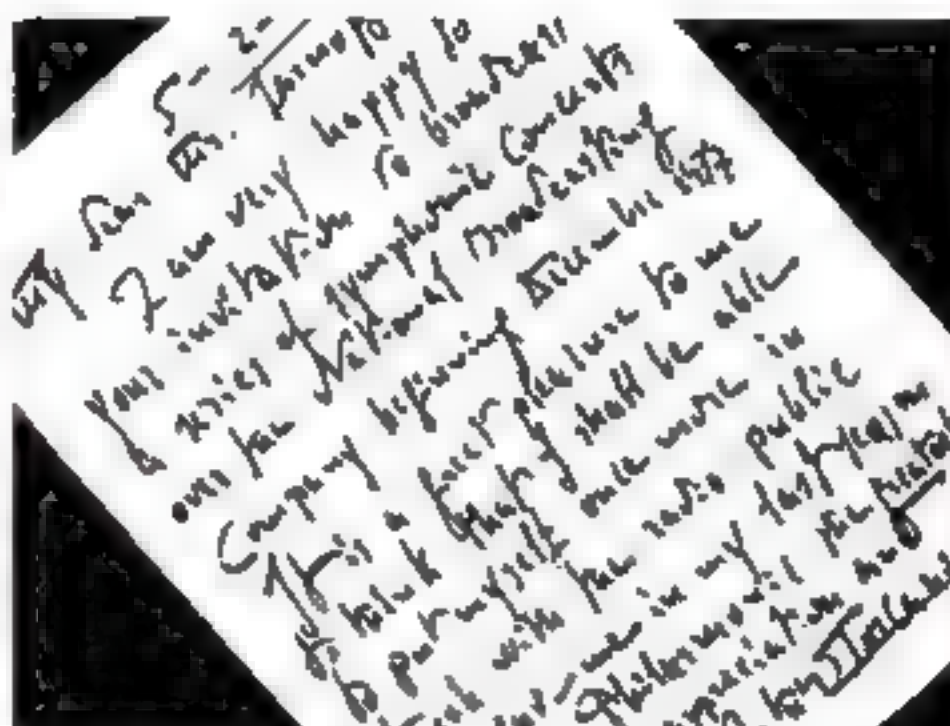 5- 2-
My dear Mr.
I am very happy to
your invitation to broadcast
a series of symphonic concerts
over the National Broadcasting
Company beginning December 1937
It is a great pleasure to me
to think that I shall be able
to put myself once more in
with the radio public
me in my last year
Philharmonic the greatest